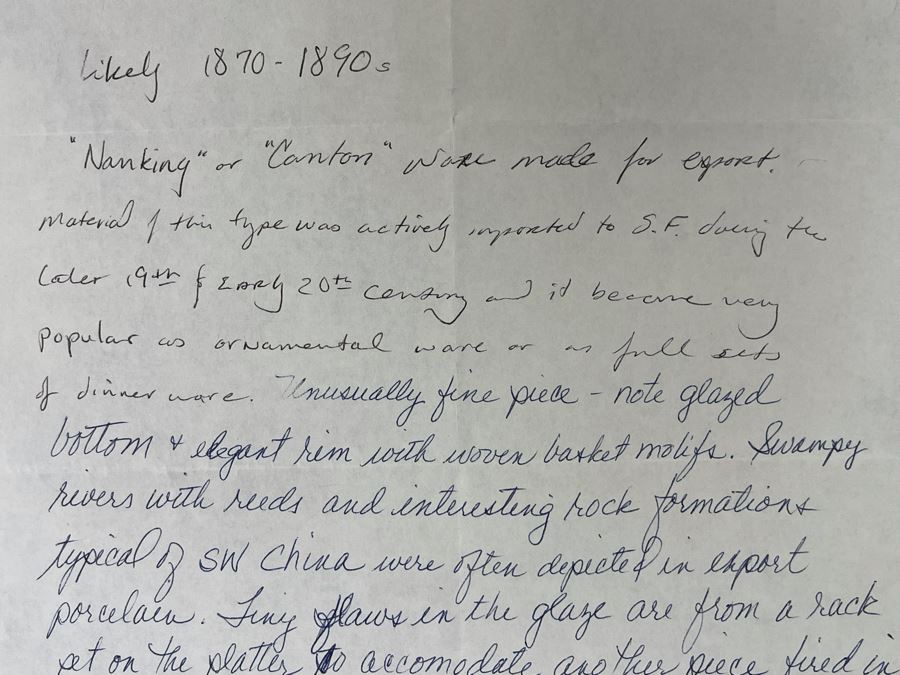 Likely 1870-1890s
"Nanking" or "Canton" Ware made for export.
Material of this type was actively imported to S.F. during the
later 19th & Early 20th century and it became very
popular as ornamental ware or as full sets
of dinner ware. Unusually fine piece - note glazed
bottom & elegant rim with woven basket motifs. Swampy
rivers with reeds and interesting rock formations
typical of SW China were often depicted in export
porcelain. Tiny flaws in the glaze are from a rack
set on the platter to accomodate another piece fired in